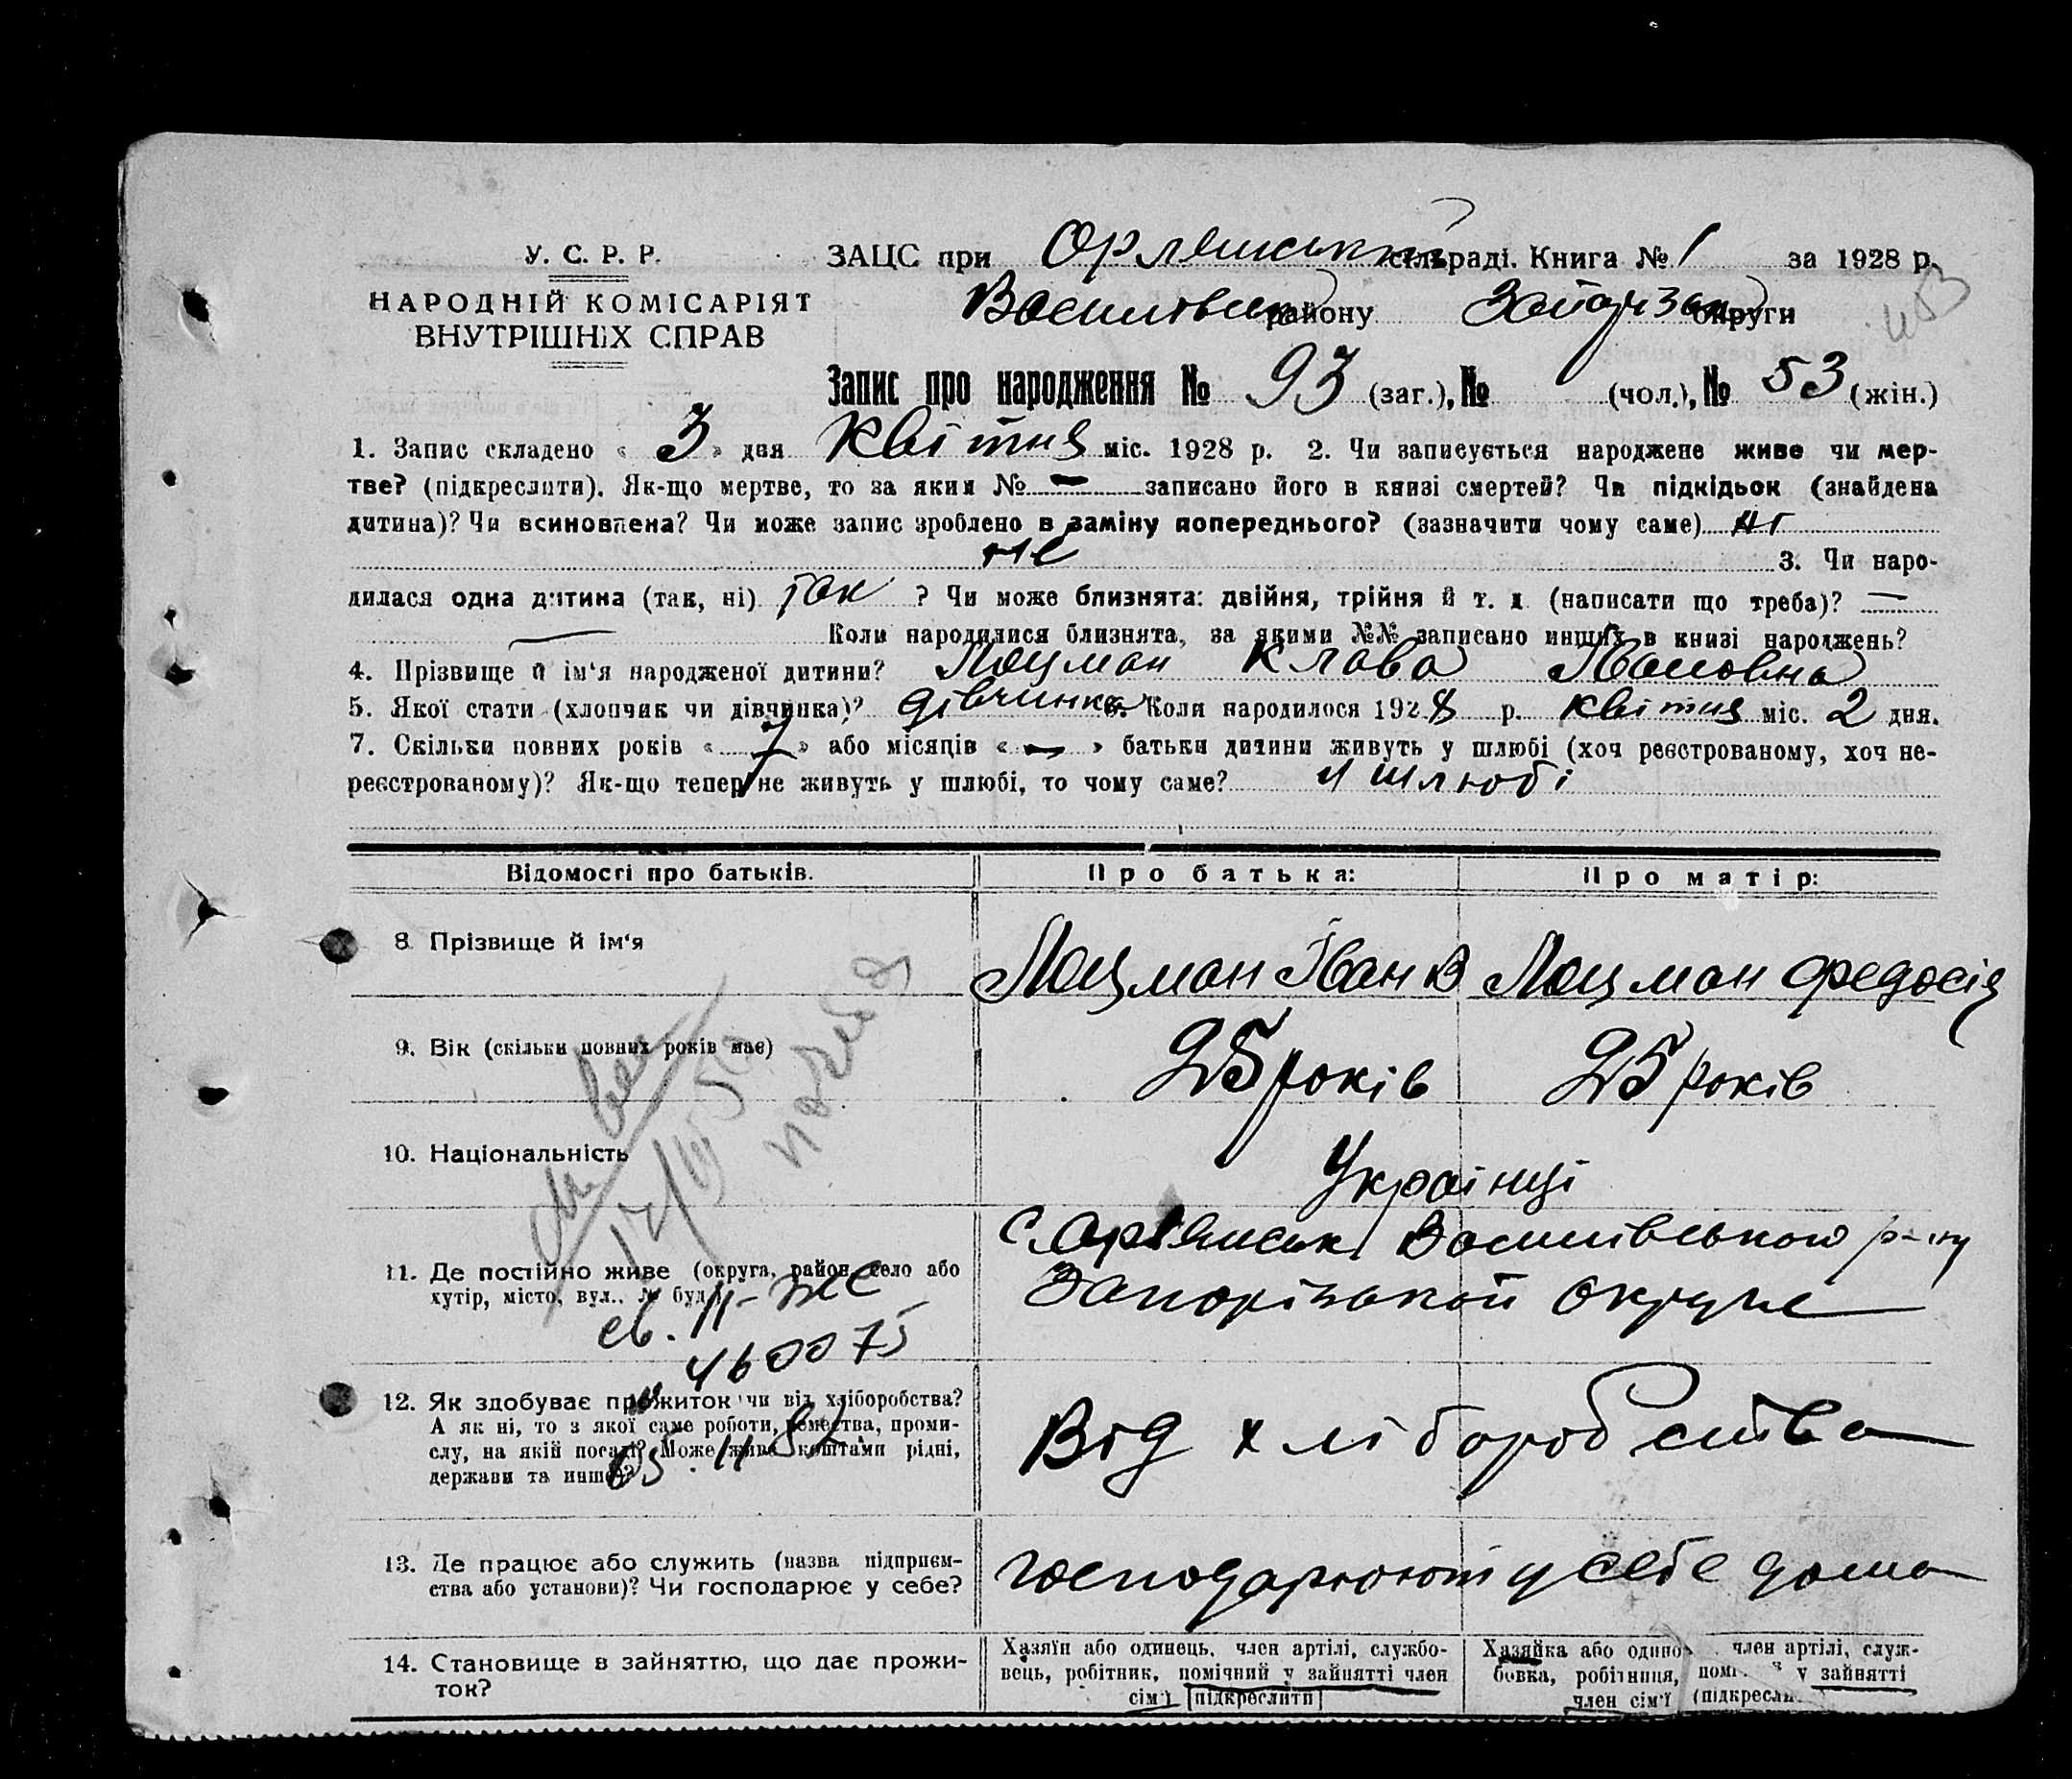 У. С. Р. Р.
НАРОДНІЙ КОМІСАРІЯТ
ВНУТРІШНІХ СПРАВ
ЗАЦС при Орлянській сільраді. Книга № 1 за 1928 р.
Василівськ району Запорізьк округи
Запис про народження № 93 (заг.), № (чол.), № 53 (жін.)
1. Запис складено « 3 » дня Квітня міс. 1928 р. 2. Чи записується народжене живе чи мер-
тве? (підкреслити). Як-що мертве, то за яким № — записано його в книзі смертей? Чи підкідьок (знайдена
дитина)? Чи всиновлена? Чи може запис зроблено в заміну попереднього? (зазначити чому саме)
не 3. Чи наро-
дилася одна дитина (так, ні) так ? Чи може близнята: двійня, трійня й т. д. (написати що треба)? —
— Коли народилися близнята, за якими №№ записано инших в книзі народжень?
4. Прізвище й ім'я народженої дитини? Лоцман Клава Івановна
5. Якої стати (хлопчик чи дівчинка)? дівчинка 6. Коли народилося 1928 р. квітня міс. 2 дня.
7. Скільки повних років « 7 » або місяців « — » батьки дитини живуть у шлюбі (хоч реєстрованому, хоч не-
реєстрованому)? Як-що тепер не живуть у шлюбі, то чому саме? у шлюбі
Відомості про батьків. Про батька: Про матір:
8. Прізвище й ім'я Лоцман Іван В Лоцман Федосія
9. Вік (скільки повних років має) 25 років 25 років
10. Національність Українці
11. Де постійно живе (округа, район, село або
хутір, місто, вул., № буд.)
с. Орлянськ Василівського р-ну
Запорізької округи
св. II-ЖС
460075
05.11.82
12. Як здобуває прожиток: чи від хліборобства?
А як ні, то з якої саме роботи, ремества, проми-
слу, на якій посаді? Може живе коштами рідні,
держави та инше?
Від хліборобства
13. Де працює або служить (назва підприєм-
ства або установи)? Чи господарює у себе?
господарюють у себе дома
14. Становище в зайняттю, що дає прожи-
ток?
Хазяїн або одинець, член артілі, службо-
вець, робітник, помічний у зайнятті член
сім'ї [підкреслити]
Хазяйка або одино член артілі, служ-
бовка, робітниця, у зайнятті
член сім'ї